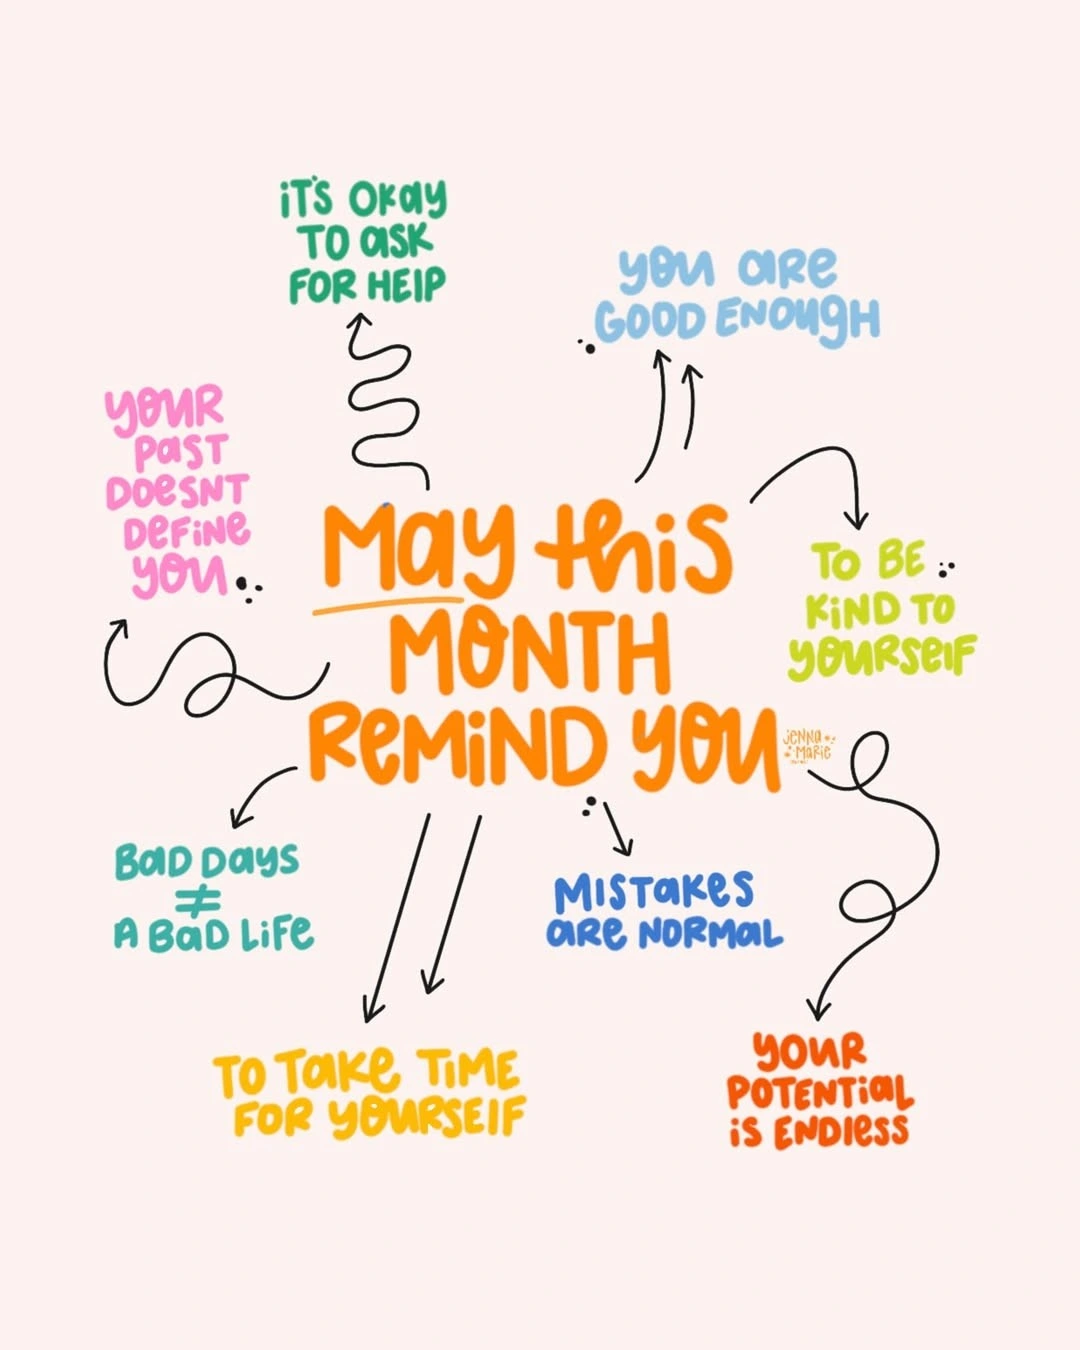 iT'S OKay
TO asK
FOR HElP
you are
GOOD ENOugH
youR
PasT
DOesNT
DeFiNe
you
May this
MONTH
ReMiND you
TO BE
KiND TO
youRself
jeNNa
MaRie
BaD Days
≠
A BaD LiFe
MISTaKes
are NORMaL
TO TaKe TiME
FOR yOuRSElF
youR
POTENTiaL
iS ENDless